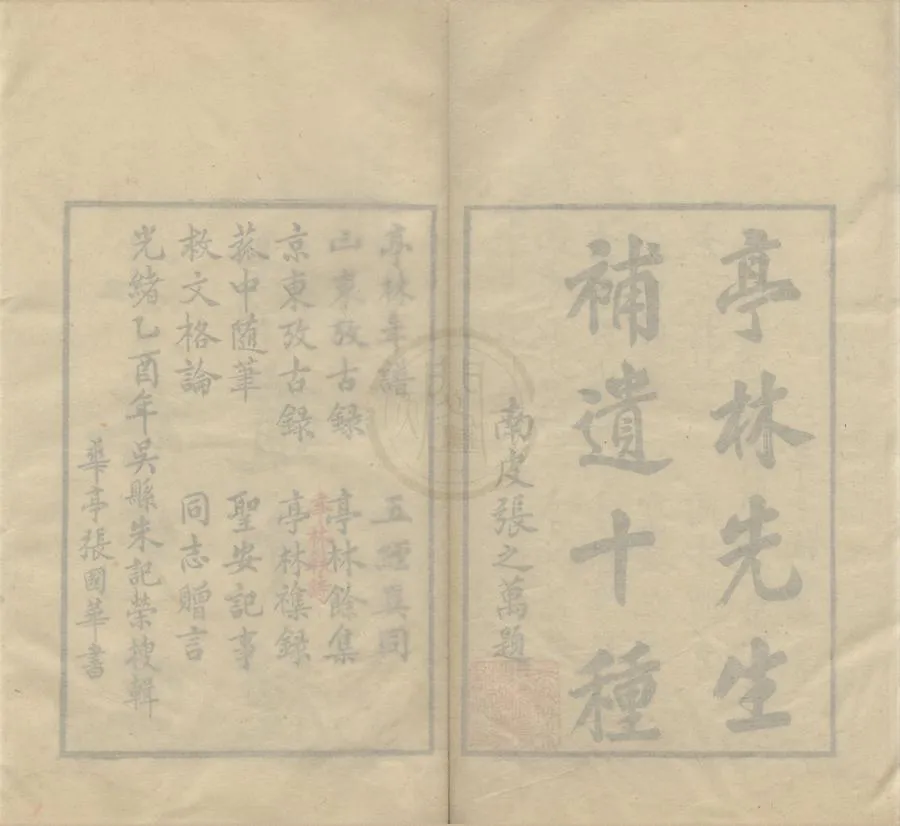 亭林先生
補遺十種
南皮張之萬題
亭林年譜　五經異同
山東攷古録　亭林餘集
京東攷古録　亭林襍録
菰中随筆　聖安記事
救文格論　同志贈言
光緒乙酉年吳縣朱記榮搜輯
華亭張國華書